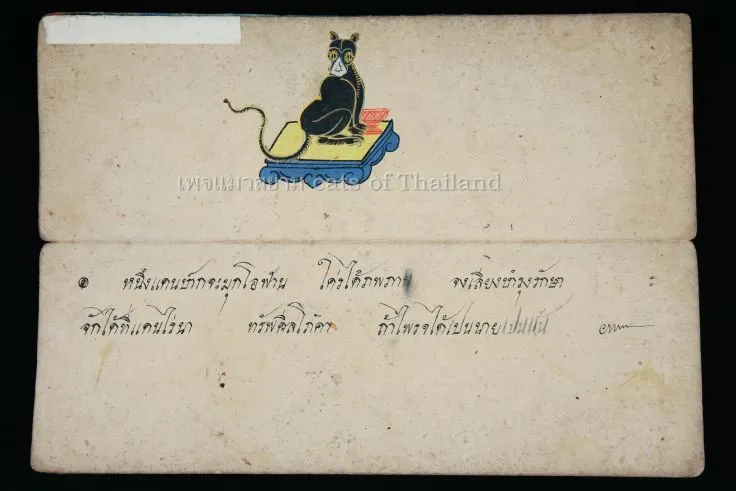 เพจแมวสยาม cats of Thailand
๏ หนึ่งแดนปากจะมุกโอฬาน ใค่รได้ จงเลี้ยงบำรุงรักษา ะ
จักได้ที่แดนไร่นา ทรัพศีลโภ้คา ถ้าไพร่จได้เปนนาย ๛